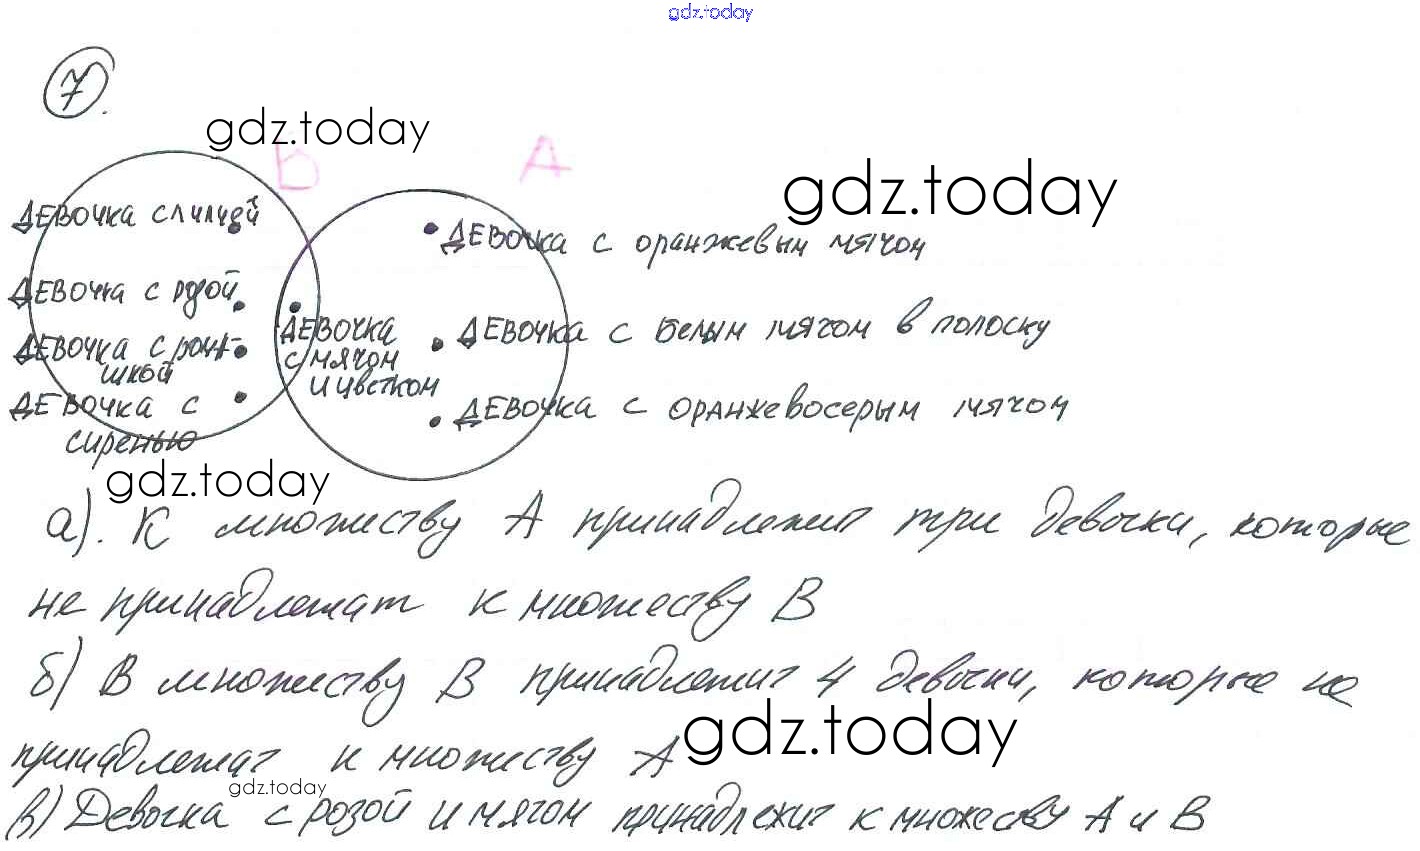 gdz.today
7.
gdz.today
Б A
gdz.today
ДЕВОЧКА С ЛИЛИЕЙ
ДЕВОЧКА С ОРАНЖЕВЫМ МЯЧОМ
ДЕВОЧКА С РОЗОЙ
ДЕВОЧКА С МЯЧОМ И ЦВЕТКОМ
ДЕВОЧКА С БЕЛЫМ МЯЧОМ В ПОЛОСКУ
ДЕВОЧКА С РОМАШКОЙ
ДЕВОЧКА С СИРЕНЬЮ
ДЕВОЧКА С ОРАНЖЕВОСЕРЫМ МЯЧОМ
gdz.today
а). К множеству А принадлежит три девочки, которые
не принадлежат к множеству В
б) В множеству В принадлежит 4 девочки, которые не
gdz.today
принадлежат к множеству А
gdz.today
в) Девочка с розой и мячом принадлежит к множеству А и В